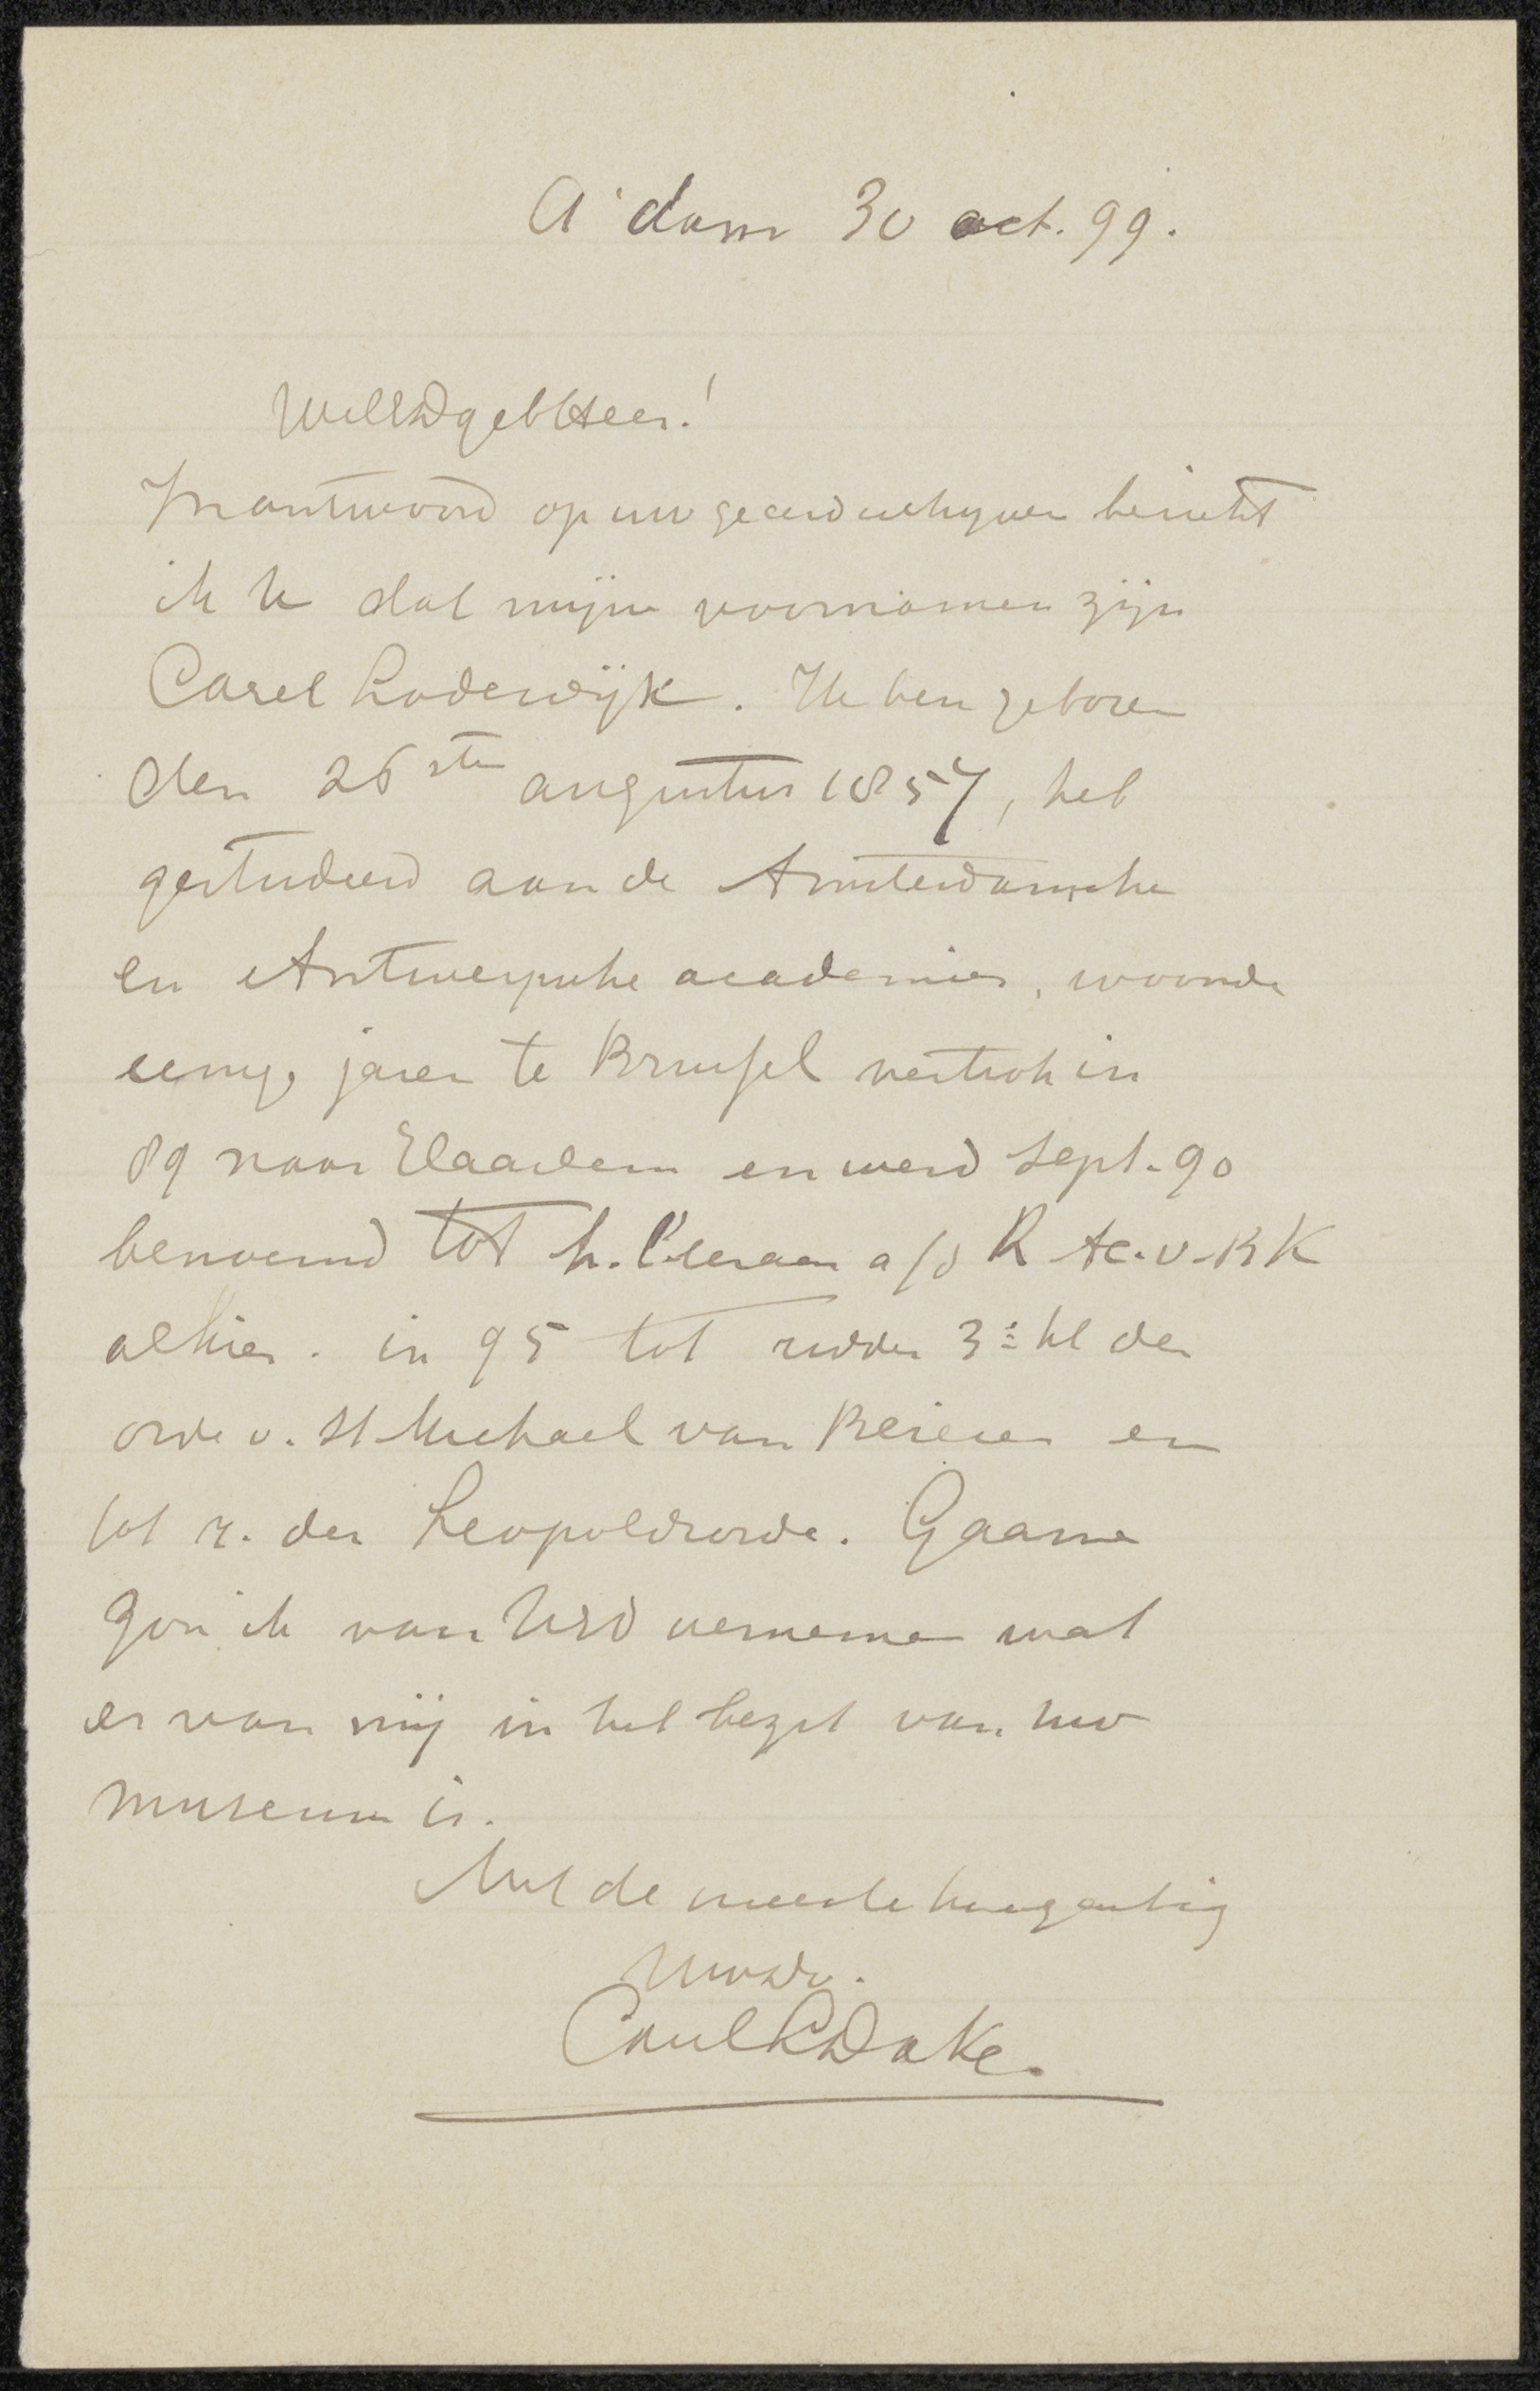 A'dam 30 oct. 99.
WelEdgebHeer!
In antwoord op uw geeerd schrijven bericht
ik U dat mijne voornamen zijn
Carel Lodewijk. Ik ben geboren
den 26sten augustus 1857, heb
gestudeerd aan de Amsterdamsche
en Antwerpsche academies, woonde
eenige jaren te Brussel vertrok in
89 naar Haarlem en werd Sept. 90
benoemd tot h. leeraar a/d R Ac. v. B K
alhier. in 95 tot ridder 3e kl der
orde v. St Michael van Beieren en
tot r. der Leopoldsorde. Gaarne
zou ik van UEd vernemen wat
er van mij in het bezit van uw
museum is.
Met de meeste hoogachting
Uwdv.
Carel L Dake.